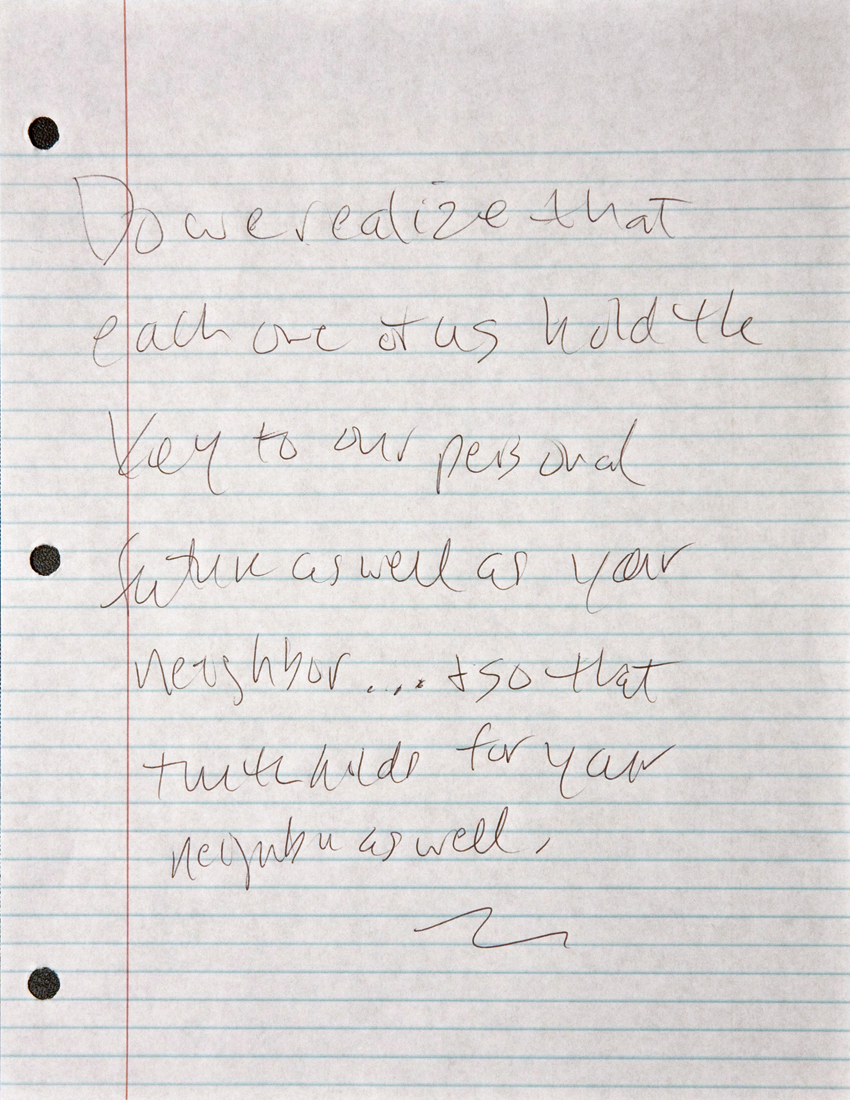 Do we realize that
each one of us hold the
key to our personal
future as well as your
neighbor.... + so that
truth holds for your
neighbor as well.